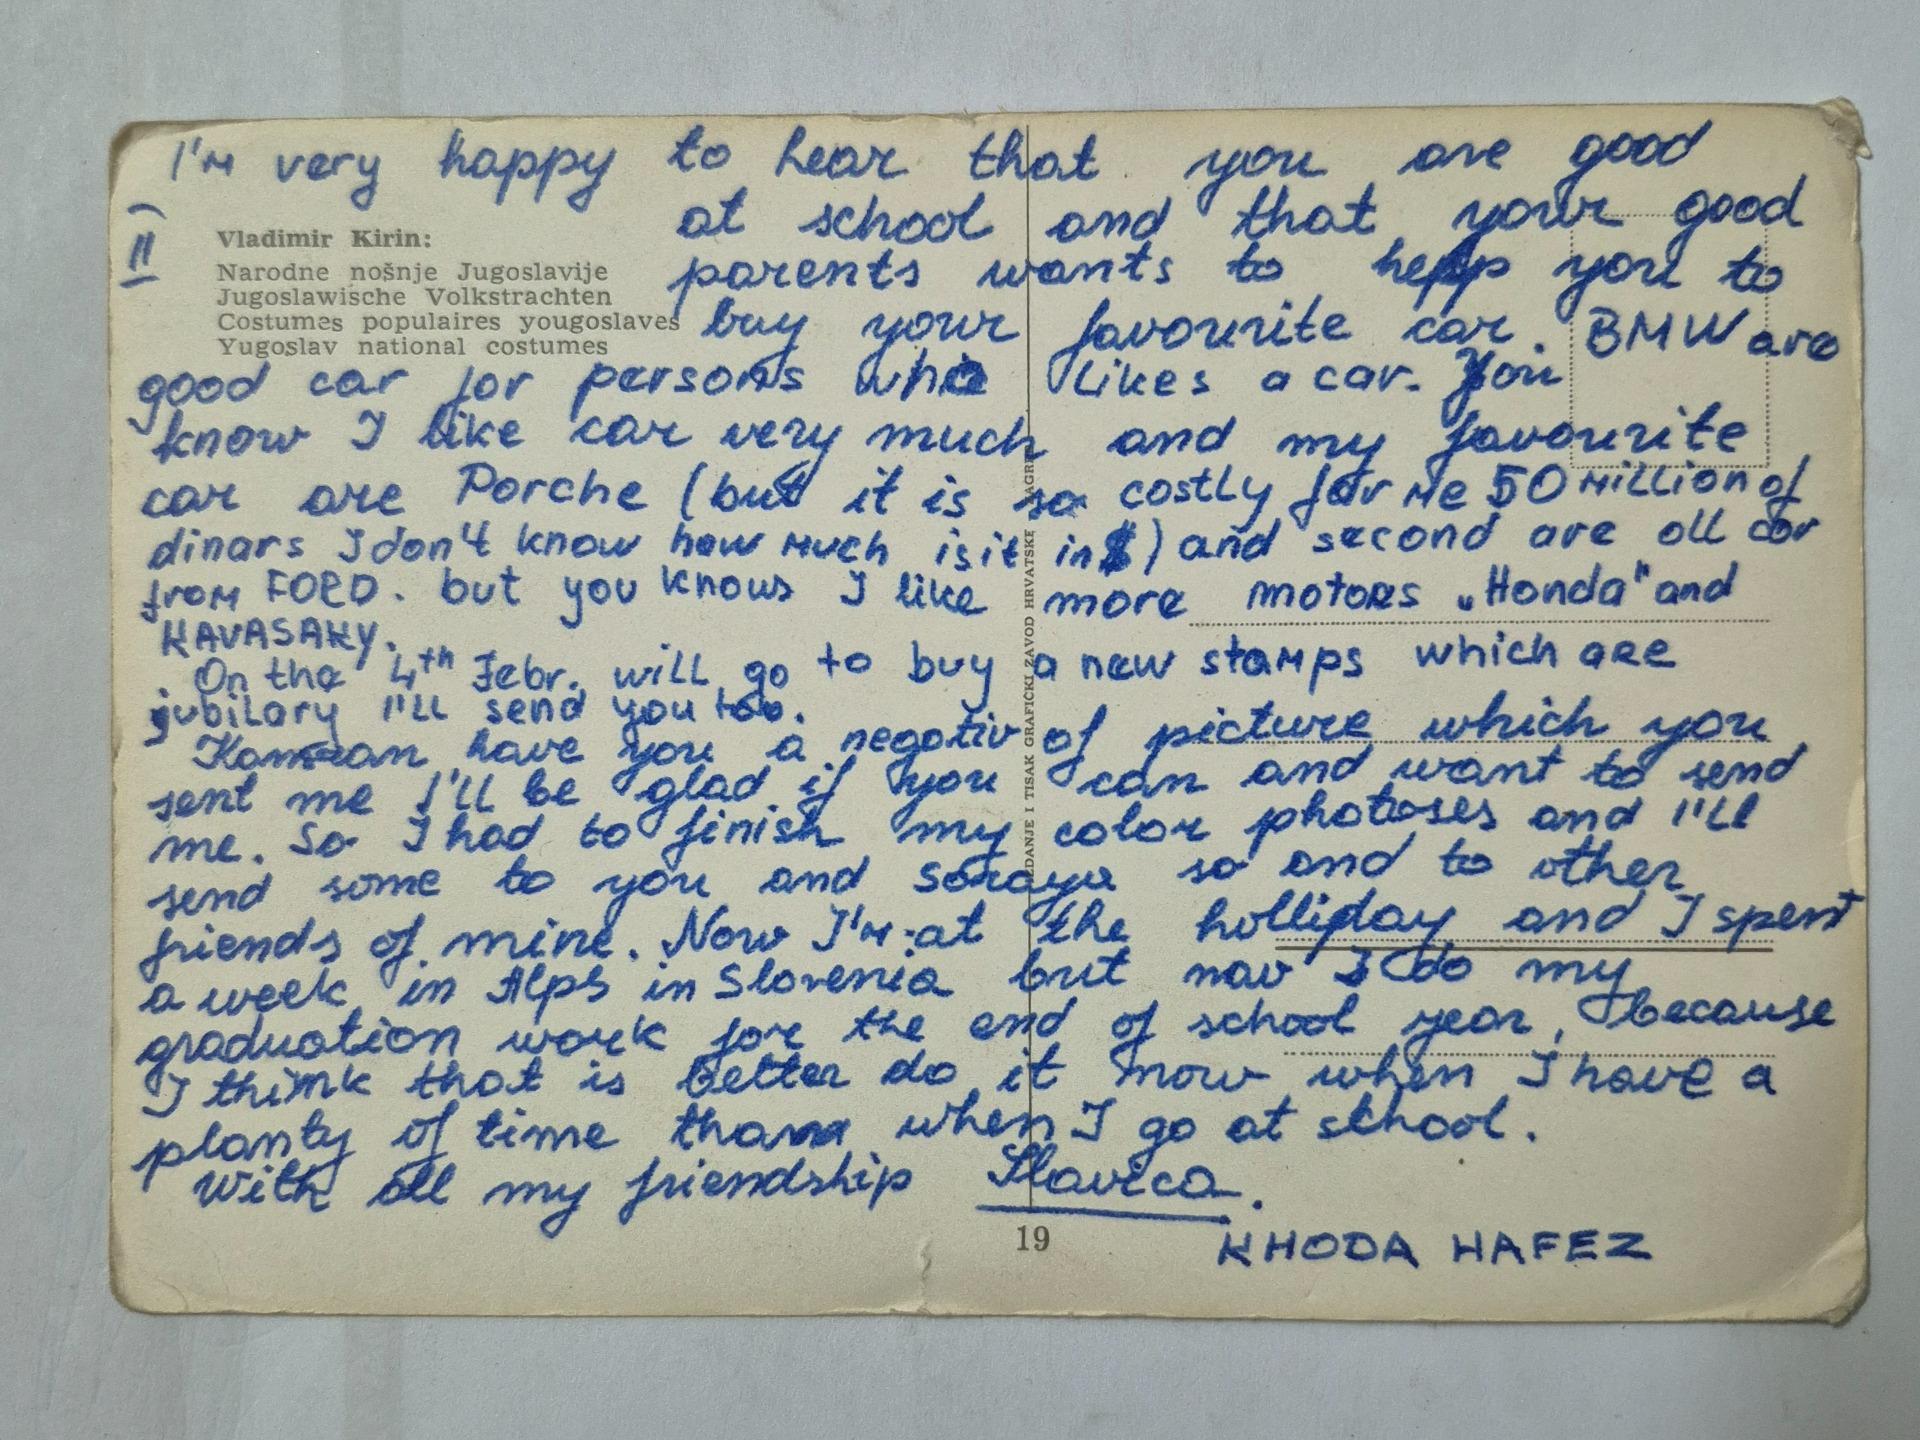 I'm very happy to hear that you are good
II)
at school and that your good
Vladimir Kirin:
Narodne nošnje Jugoslavije
Jugoslawische Volkstrachten
Costumes populaires yougoslaves
Yugoslav national costumes
parents wants to help you to
buy your favourite car. BMW are
good car for persons who likes a car. You
know I like car very much and my favourite
car are Porche (but it is so costly for me 50 million of
dinars I don't know how much is it in $) and second are all car
from FORD. but you knows I like more motors „Honda" and
KAVASAKY.
On the 4th Febr. will go to buy a new stamps which are
jubilary I'll send you too.
Kamran have you a negativ of picture which you
sent me I'll be glad if you can and want to send
me. So I had to finish my color photoses and I'll
send some to you and Soraya so and to other
friends of mine. Now I'm at the holliday and I spent
a week in Alps in Slovenia but nav I do my
graduation work for the end of school year, because
I think that is better do it now when I have a
planty of time than when I go at school.
With all my friendship Slavica.
KHODA HAFEZ
19
IZDANJE I TISAK GRAFIČKI ZAVOD HRVATSKE ZAGREB